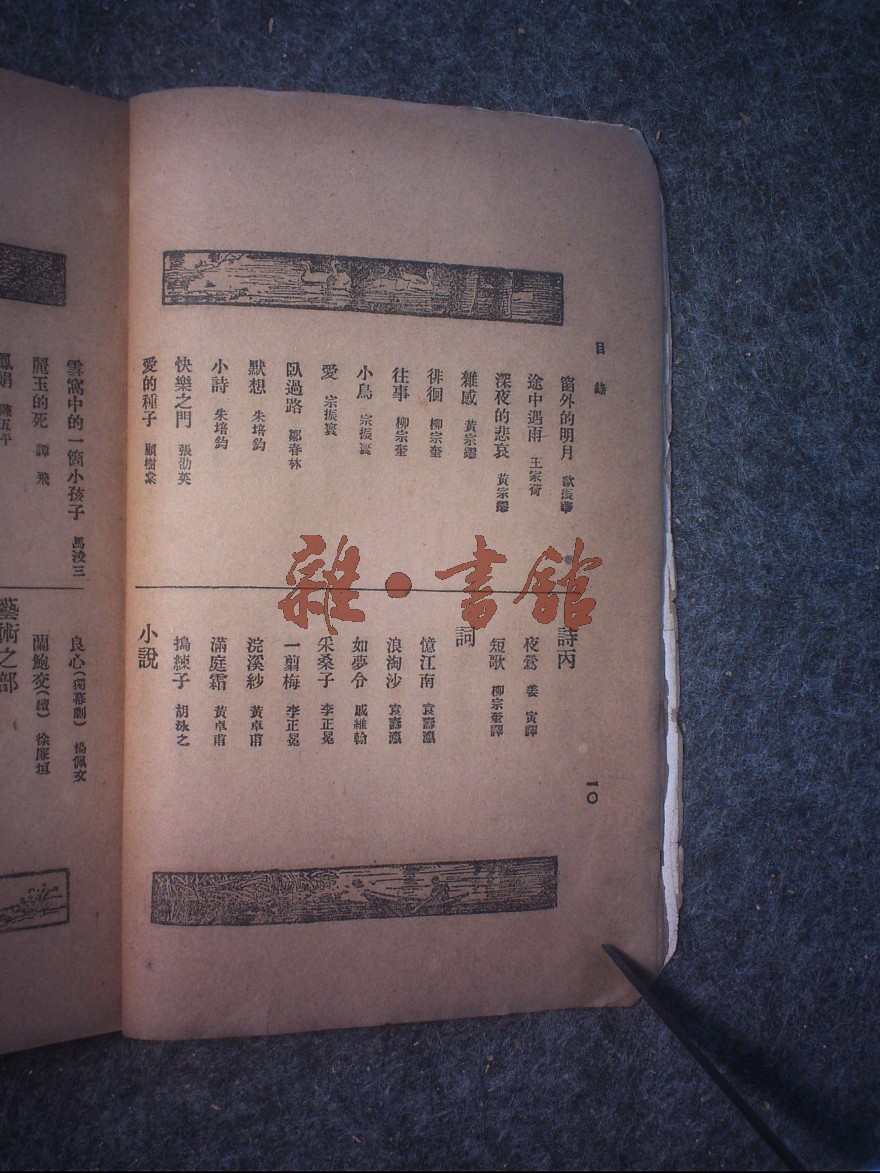 目錄
窗外的明月 歐振華
途中遇雨 王家荷
深夜的悲哀 黃宗繆
雜感 黃宗繆
徘徊 柳宗奎
往事 柳宗奎
小鳥 宗振寰
愛 宗振寰
臥過路 鄒春林
默想 朱培鈞
小詩 朱培鈞
快樂之門 張劭英
愛的種子 顧樹棠
詩丙
夜鶯 姜寅譯
短歌 柳宗奎譯
詞
憶江南 袁壽瀛
浪淘沙 袁壽瀛
如夢令 戚維翰
采桑子 李正冕
一翦梅 李正冕
浣溪紗 黃卓甫
滿庭霜 黃卓甫
搗練子 胡泳之
小說
一〇
雪窩中的一個小孩子 馬淩三
麗玉的死 譚飛
鳳娟 陳五平
良心(獨幕劇) 楊佩文
蘭鮑交(續) 徐雁垣
藝術之部
雜·書館